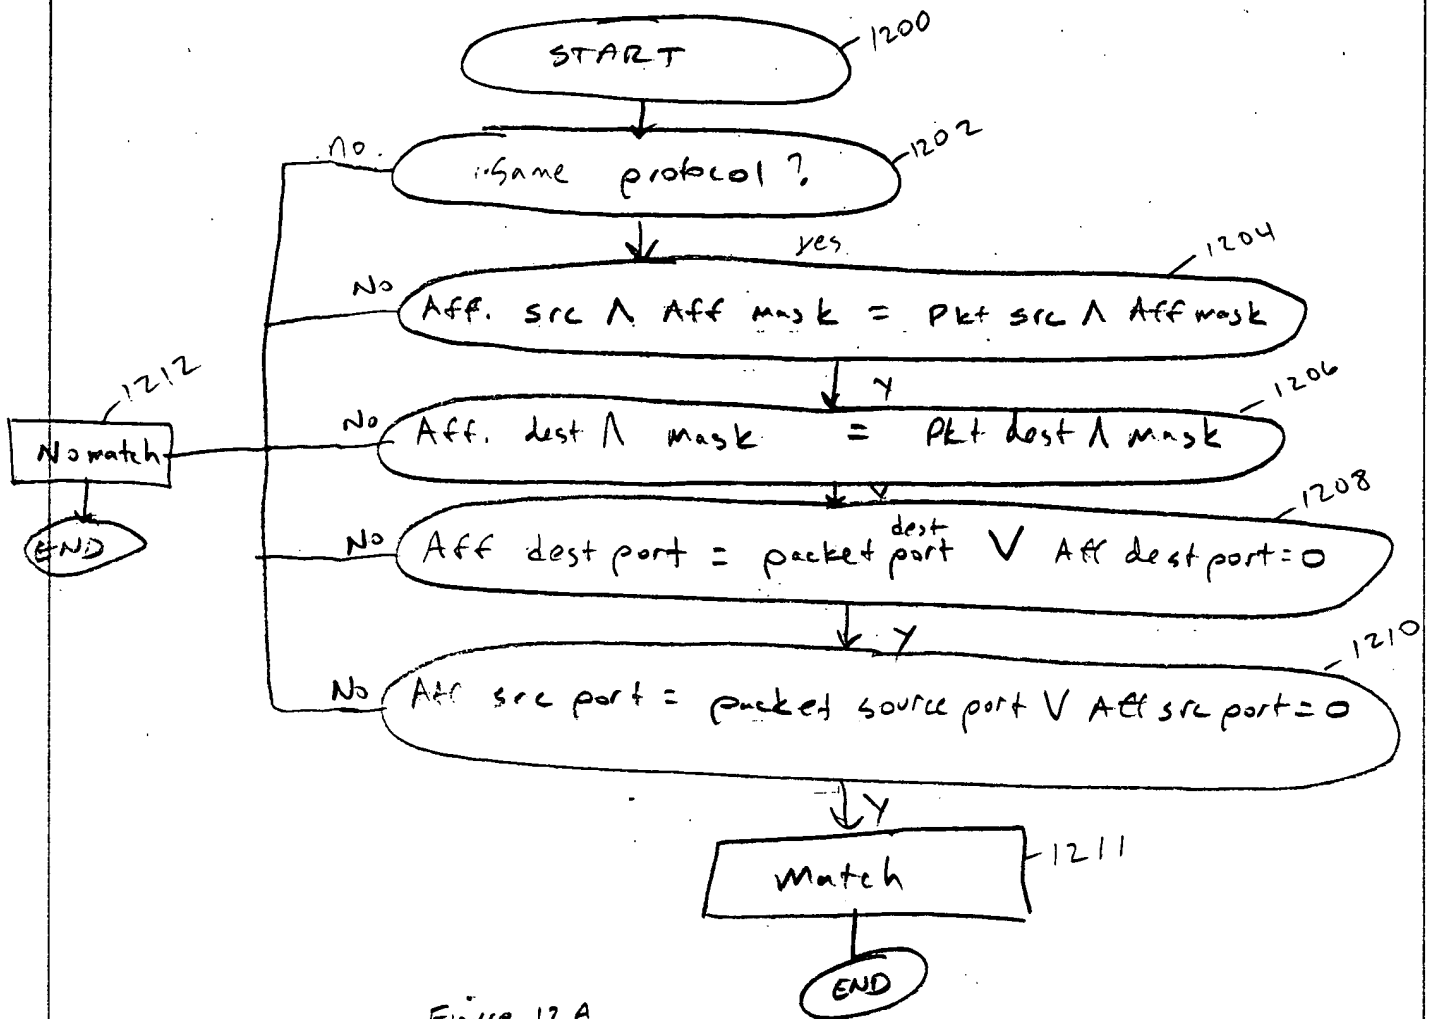 START
1200
no.
Same protocol?
1202
yes
1204
No
Aff. src Λ Aff mask = Pkt src Λ Aff mask
1212
Y
1206
No
Aff. dest Λ mask = Pkt dest Λ mask
No match
Y
1208
END
No
Aff dest port = packet dest port V Aff dest port = 0
Y
1210
No
Aff src port = packet source port V Aff src port = 0
Y
Match
1211
END
Figure 12A